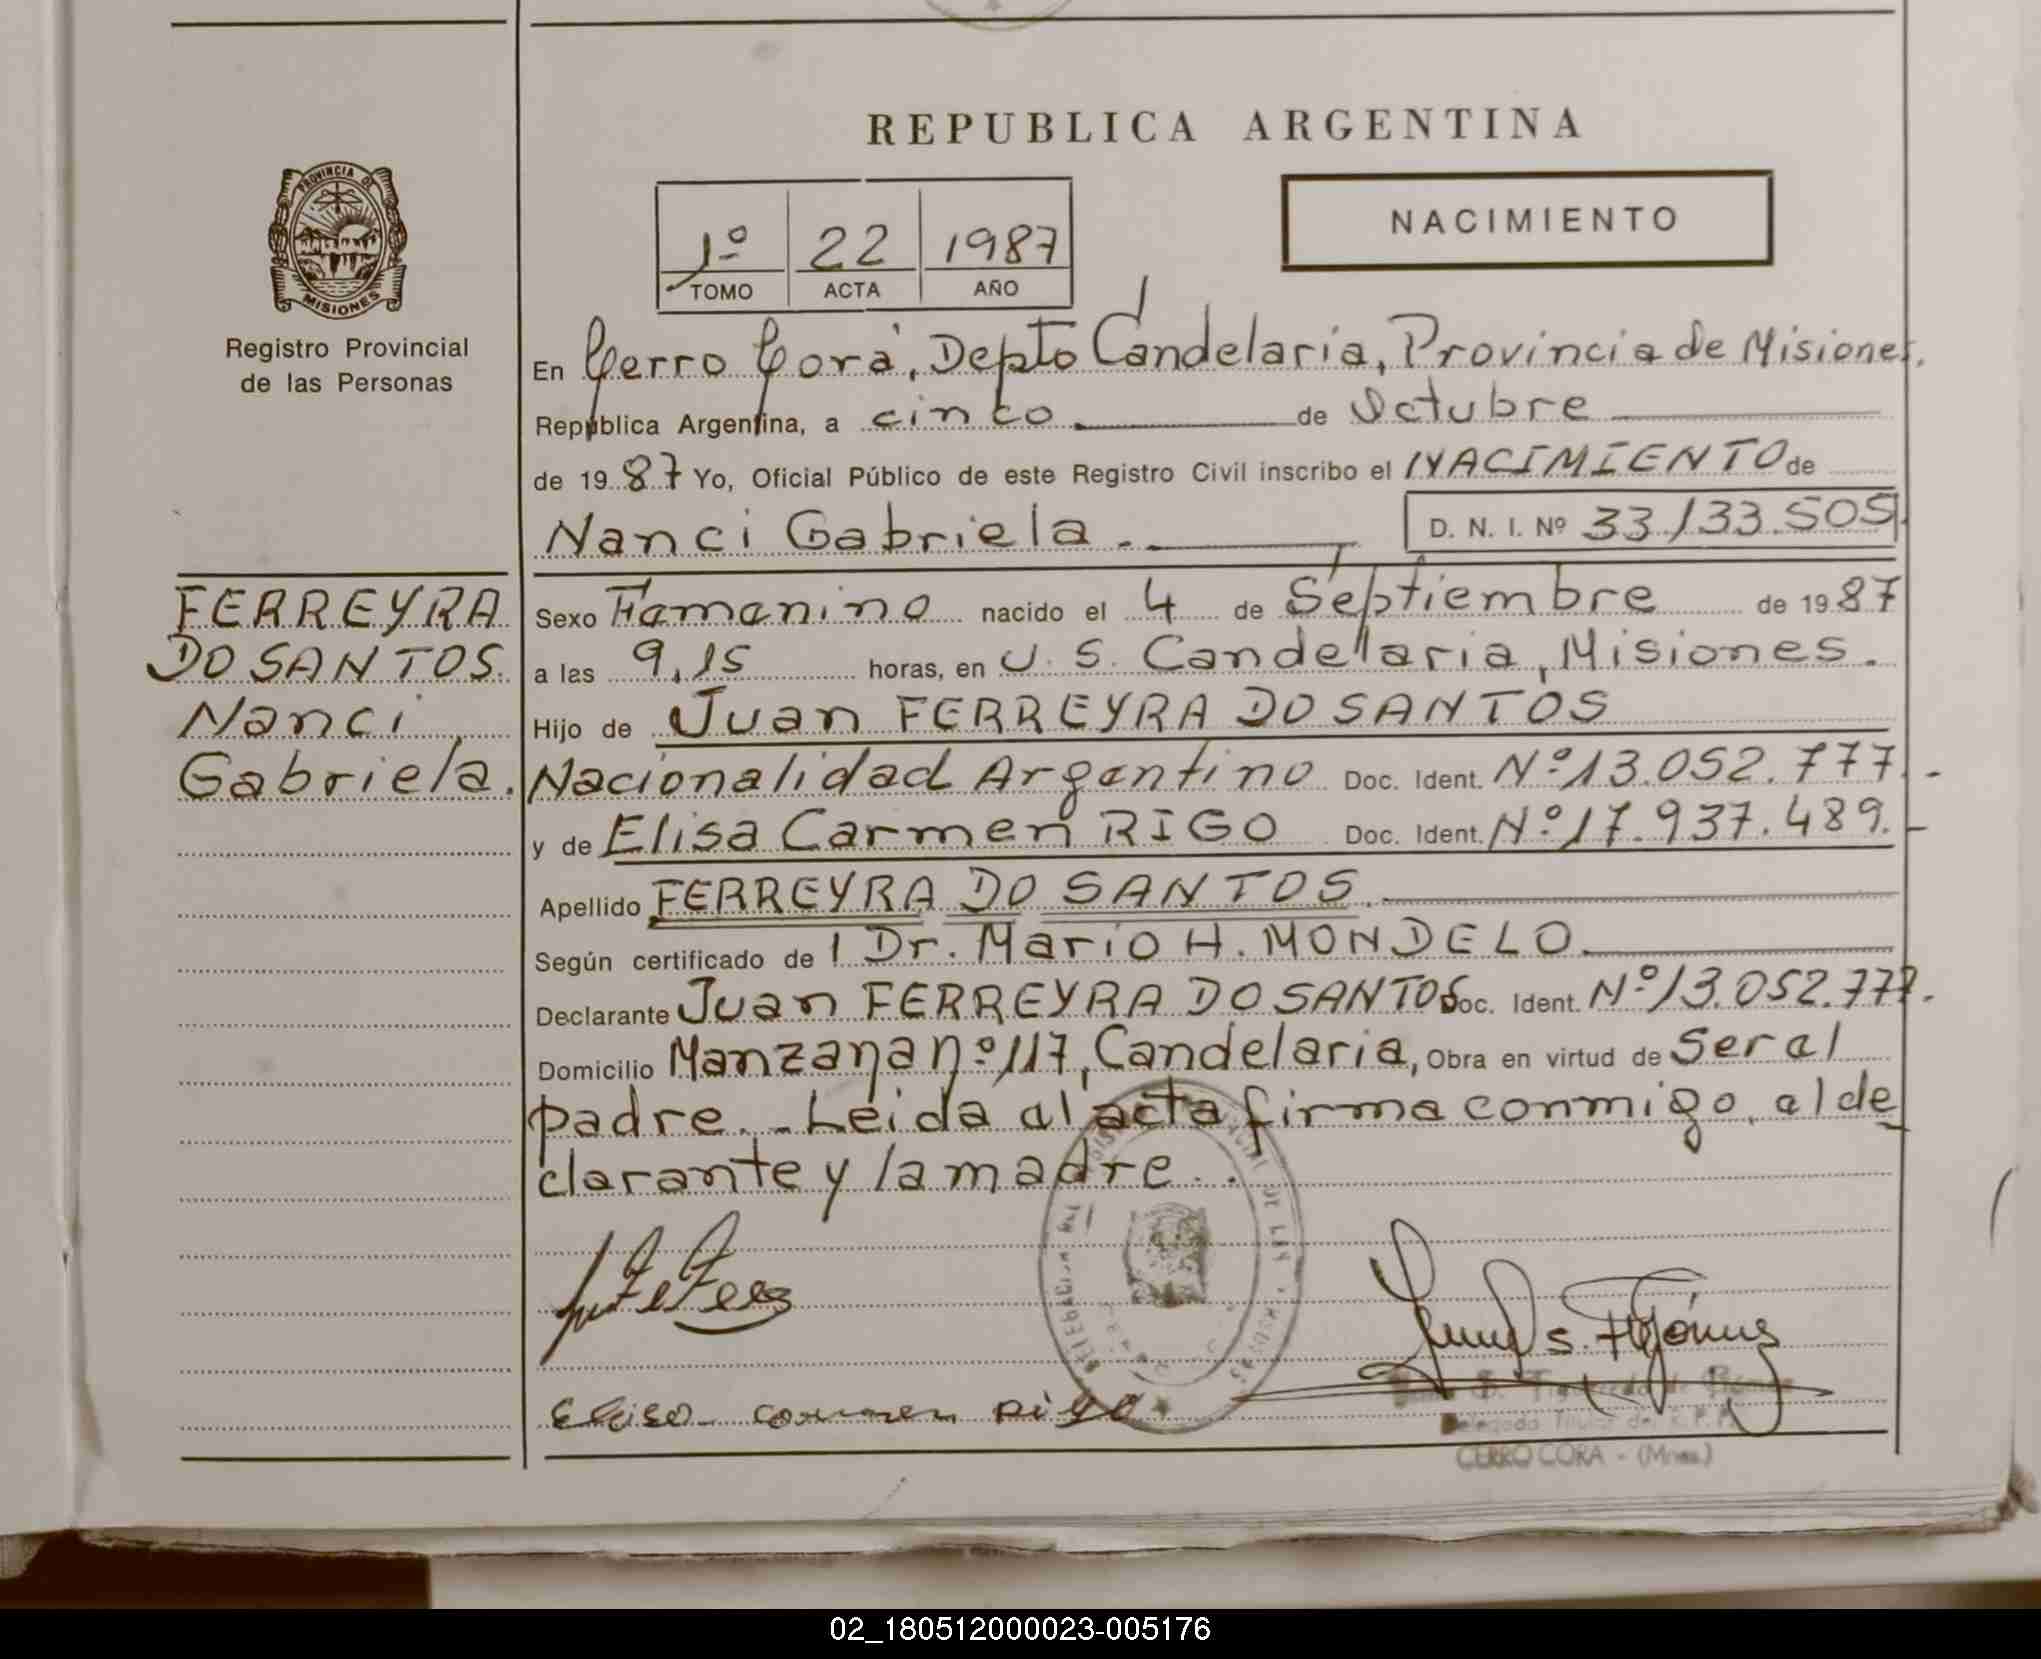 REPUBLICA ARGENTINA
PROVINCIA DE
MISIONES
Registro Provincial
de las Personas
1º 22 1987
TOMO ACTA AÑO
NACIMIENTO
En Cerro Corá, Depto Candelaria, Provincia de Misiones.
República Argentina, a cinco de Octubre
de 1987 Yo, Oficial Público de este Registro Civil inscribo el NACIMIENTO de
Nanci Gabriela.- D. N. I. Nº 33/33.505
FERREYRA
DO SANTOS.
Nanci
Gabriela.
Sexo Femenino nacido el 4 de Septiembre de 1987
a las 9,15 horas, en U. S. Candelaria, Misiones.
Hijo de Juan FERREYRA DO SANTOS
Nacionalidad Argentino Doc. Ident. Nº 13.052.777.-
y de Elisa Carmen RIGO Doc. Ident. Nº 17.937.489.-
Apellido FERREYRA DO SANTOS.
Según certificado de l Dr. Mario H. MONDELO.
Declarante Juan FERREYRA DO SANTOS Doc. Ident. Nº 13.052.777.
Domicilio Manzana nº 117, Candelaria, Obra en virtud de Ser al
padre.- Leida al acta firma conmigo, al de
clarante y la madre..
Elisa Carmen Rigo
CERRO CORA - (Mnes.)
02_180512000023-005176